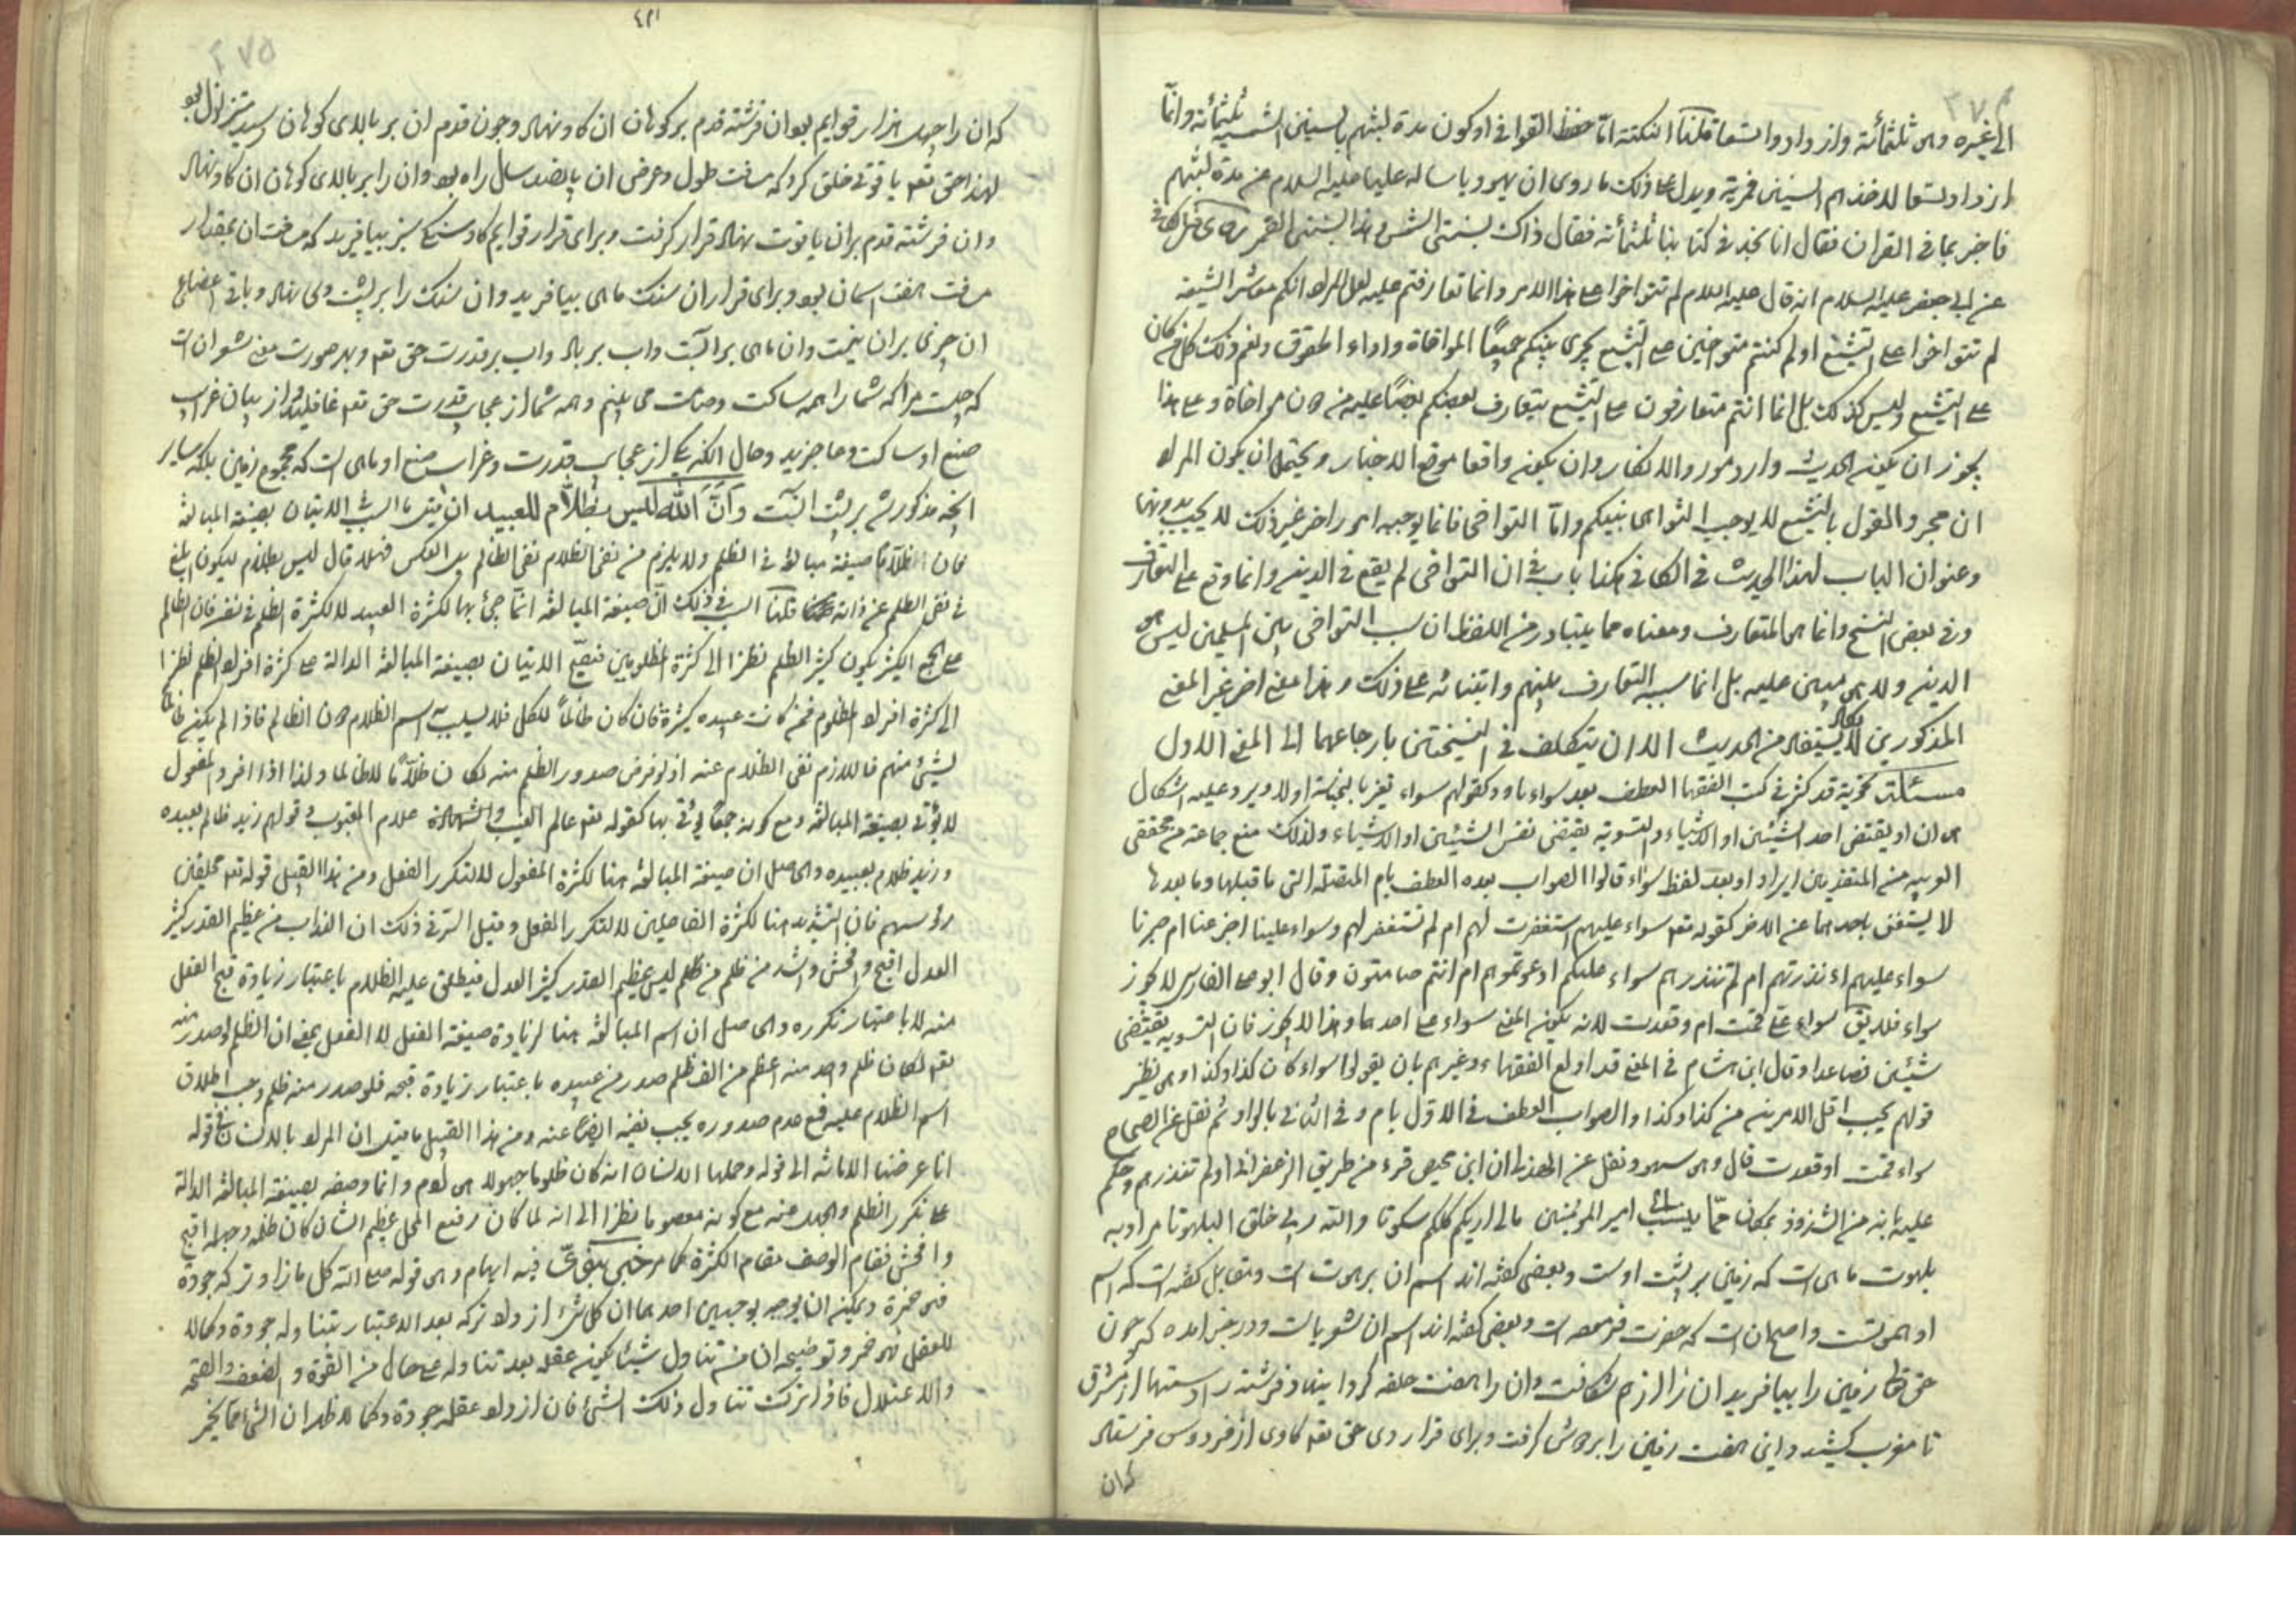 الى غيره وهى ثلثمائة وازدادوا تسعا قلنا النكتة امّا حفظ القوافى او كون مدة لبثهم بالسنين الشمسية ثلثمائة وانّما
ازداد تسعا لاخذهم السنين قمرية ويدل على ذلك ما روى ان يهوديا سال عليا عليه السلام عن مدة لبثهم
فاخبر بما فى القران فقال انا نجد فى كتابنا ثلثمائة فقال ذاك بسنى الشمس وهذا بسنى القمر
عن ابى جعفر عليه السلام انه قال عليه السلام لم تتواخوا على هذا الامر وانما تعارفتم عليه لعل المراد انكم معشر الشيعة
لم تتواخوا على التشيع اذ لو كنتم متواخين على التشيع لجرى بينكم جميعًا المواخاة واداء الحقوق
على التشيع وليس كذلك بل انما انتم متعارفون على التشيع يتعارف بعضكم بعضًا عليه من دون مواخاة وعلى هذا
يجوز ان يكون الحديث واردا مورد الانكار وان يكون واقعا موقع الاخبار ويحتمل ان يكون المراد
ان مجرد القول بالتشيع لا يوجب التواخى بينكم وامّا التواخى فانما يوجبه امور اخر غير ذلك لا يجب بدونها
وعنوان الباب لهذا الحديث فى الكافى هكذا باب فى ان التواخى لم يقع فى الدين وانما وقع على التعارف
وفى بعض النسخ وانما هى المتعارف ومعناه مما يتبادر من اللفظ ان سبب التواخى بين المسلمين ليس هو
الدين ولا هى مبنى عليه بل انما سببه التعارف بينهم وابتنائه على ذلك وهذا معنى اخر غير المعنى
المذكورين لا يكاد يستفاد من الحديث الا ان يتكلف فى النسختين بارجاعهما الى المعنى الاول
مسئلة نحوية قد كثر فى كتب الفقهاء العطف بعد سواء باو كقولهم سواء تغير بالنجاسة اولا ويرد عليه اشكال
هى ان او يقتضى احد الشيئين او الاشياء والتسوية يقتضى نفس الشيئين او الاشياء ولذلك منع جماعة من محققى
العربية من المتقدمين ايراد او بعد لفظ سواء قالوا الصواب بعده العطف بام المتصلة التى ما قبلها وما بعدها
لا يستغنى باحدهما عن الاخر كقوله تعالى سواء عليهم استغفرت لهم ام لم تستغفر لهم وسواء علينا اجزعنا ام صبرنا
سواء عليهم ءانذرتهم ام لم تنذرهم سواء عليكم ادعوتموهم ام انتم صامتون وقال ابو على الفارسى لا يجوز
سواء فلا يق سواء علىّ قمت ام وقعدت لانه يكون المعنى سواء على احدهما وهذا لا يجوز فان التسوية يقتضى
شيئين فصاعدا وقال ابن هشام فى المغنى قد اولع الفقهاء وغيرهم بان يقولوا سواء كان كذا وكذا وهى نظير
قولهم يجب اقل الامرين من كذا وكذا والصواب العطف فى الاول بام وفى الثانى بالواو ثم نقل عن الصحاح
سواء قمت او قعدت قال وهى سهو ونقل عن الهذلى ان ابن محيص قرء من طريق الزعفرانى او لم تنذرهم وحكم
عليه بانه من الشذوذ بمكان ممّا ينسب الى امير المؤمنين مالى اريكم كلكم سكوتا والله ربى خلق البلهوتا مراد به
بلهوت ماهى است كه زمين بر پشت اوست وبعضى گفته اند اسم ان برهوت است ومقابل گفته است كه اسم
او بهموتست واصح ان است كه حضرت فرموده است وبعضى گفته اند اسم ان لشويا است ودر خبر امده كه چون
حق تعالى زمين را بيافريد ان را از هم شكافت وان را هفت طبقه گردانيد وفرشته را دستها از مشرق
تا مغرب كشيد واين هفت زمين را بر دوش گرفت وبراى قرار وى حق تعالى گاوى از فردوس فرستاد
كه ان
كه ان را چهل هزار قوايم بود ان فرشته قدم بر كوهان ان گاو نهاد وچون قدم ان بر بالاى كوهان رسيد متزلزل بود
لهذا حق تعالى ياقوتى خلق كرد كه مسافت طول وعرض ان پانصد سال راه بود وان را بر بالاى كوهان ان گاو نهاد
وان فرشته قدم بران ياقوت نهاد قرار گرفت وبراى قرار قوايم گاو سنگى سبز بيافريد كه مسافت ان بمقدار
مسافت هفت اسمان بود وبراى قرار ان سنگ ماهى بيافريد وان سنگ را بر پشت وى نهاد وباقى اعضاى
ان چيزى بران نيست وان ماهى بر ابست واب بر باد وباد بر قدرت حق تعالى وبهر صورت معنى شعر ان است
كه چيست مرا كه شما را همه ساكت وصامت مى بينم وهمه شما از عجايب قدرت حق تعالى غافليد واز بيان غرايب
صنع او ساكت وعاجزيد وحال انكه يكى از عجايب قدرت وغرايب صنع او ماهى است كه مجموع زمين بلكه ساير
انچه مذكور شد بر پشت انست وَاَنَّ اللّٰه لَيس بظلّام للعبيد ان قيل ما السبب فى الاتيان بصيغة المبالغة
فان الظلّام صيغة مبالغة فى الظلم ولا يلزم من نفى الظلام نفى الظالم بل العكس فهلا قال ليس بظالم ليكون ابلغ
فى نفى الظلم عن ذاته قلنا السر فى ذلك انّ صيغة المبالغة انما جئ بها لكثرة العبيد لا لكثرة الظلم فى نفسه فان الظالم
على الجمع الكثير يكون كثير الظلم نظرا الى كثرة المظلومين فيصحّ الاتيان بصيغة المبالغة الدالة على كثرة افراد الظلم نظرا
الى كثرة افراد المظلوم فمن كانت عبيده كثيرة فان كان ظالمًا للكل فلا يسلب اسم الظلام دون الظالم فاذا لم يكن ظالما
لشئ منهم فاللازم نفى الظلام عنه اذ لو فرض صدور الظلم منه لكان ظلّامًا لا ظالما ولذا اذا افرد المفعول
لا يؤتى بصيغة المبالغة ومع كونه جمعًا يؤتى بها كقوله تعالى عالم الغيب والشهادة علام الغيوب وقولهم زيد ظالم لعبده
وزيد ظلام لعبيده والحاصل ان صيغة المبالغة هنا لكثرة المفعول لا لتكرر الفعل ومن هذا القبيل قوله تعالى محلقين
رؤسهم فان التشديد هنا لكثرة الفاعلين لا لتكرر الفعل وقيل السرّ فى ذلك ان العذاب من عظيم القدر كثير
العدل اقبح وافحش واشد من ظلم من ظلم ليس عظيم القدر كثير العدل فيطلق عليه الظلام باعتبار زيادة قبح الفعل
منه لا باعتبار تكرره والحاصل ان اسم المبالغة هنا لزيادة صيغة الفعل لا الفعل بمعنى ان الظلم لو صدر منه
تعالى لكان ظلم واحد منه اعظم من الف ظلم صدر من عبيده باعتبار زيادة قبحه فلو صدر منه ظلم وجب اطلاق
اسم الظلام عليه فمع عدم صدوره يجب نفيه ايضًا عنه ومن هذا القبيل ما قيل ان المراد بالانسان فى قوله
انا عرضنا الامانة الى قوله وحملها الانسان انه كان ظلوما جهولا هى ادم وانما وصفه بصيغة المبالغة الدالة
على تكرر الظلم والجهل عنه مع كونه معصوما نظرا الى انه لما كان رفيع المحل عظيم الشان كان ظلمه وجهله اقبح
وافحش فقام الوصف مقام الكثرة كما مر فيه ايهام وهى قوله صلى الله كل ما زاد تركه جودة
فهى خمرة ويمكن ان يوجه بوجهين احدهما ان كل شئ ازداد تركه بعد الاعتبار بتناوله جودة وكمالا
للعقل فهو خمر وتوضيحه ان من تناول شيئا يكون عقله بعد تناوله على حال من القوة والضعف والصحة
والاعتلال فاذا ترك تناول ذلك الشئ فان ازداد عقله جودة وكمالا ظهر ان الشئ ممّا يخمر